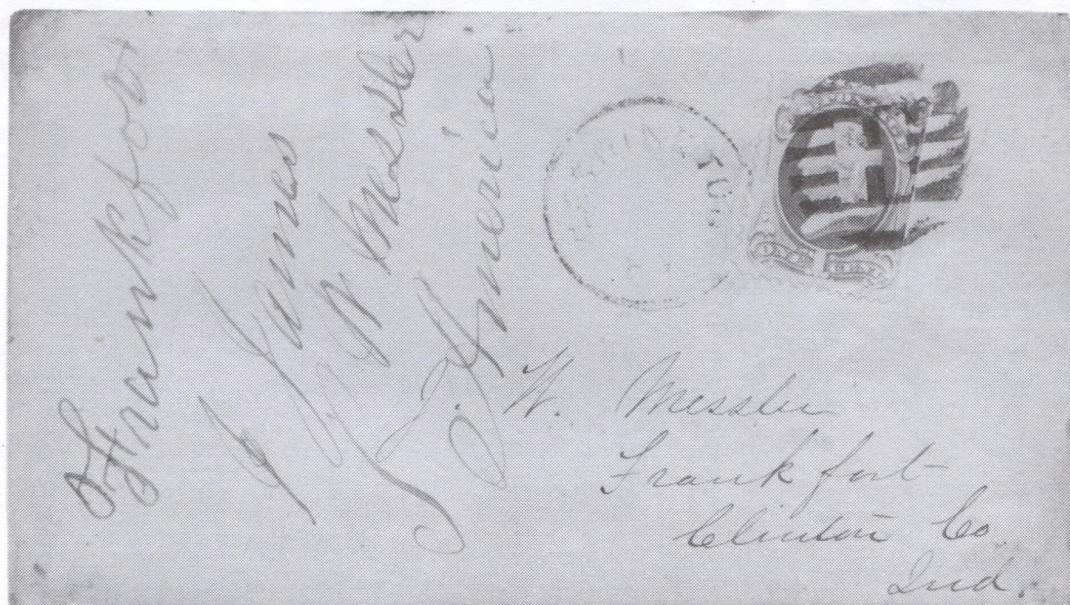 Frankfort
James
W Messler
America
J. W. Messler
Frankfort
Clinton Co.
Ind.